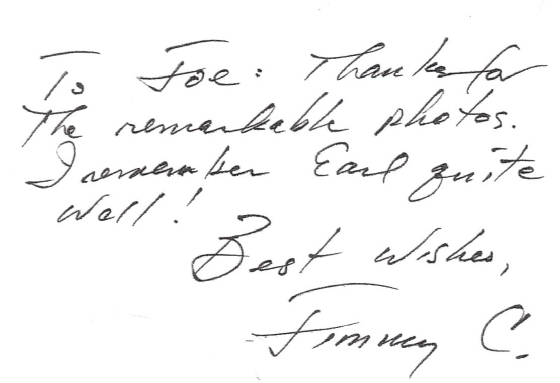 To Joe: Thanks for
the remarkable photos.
I remember Earl quite
well!
Best wishes,
Jimmy C.